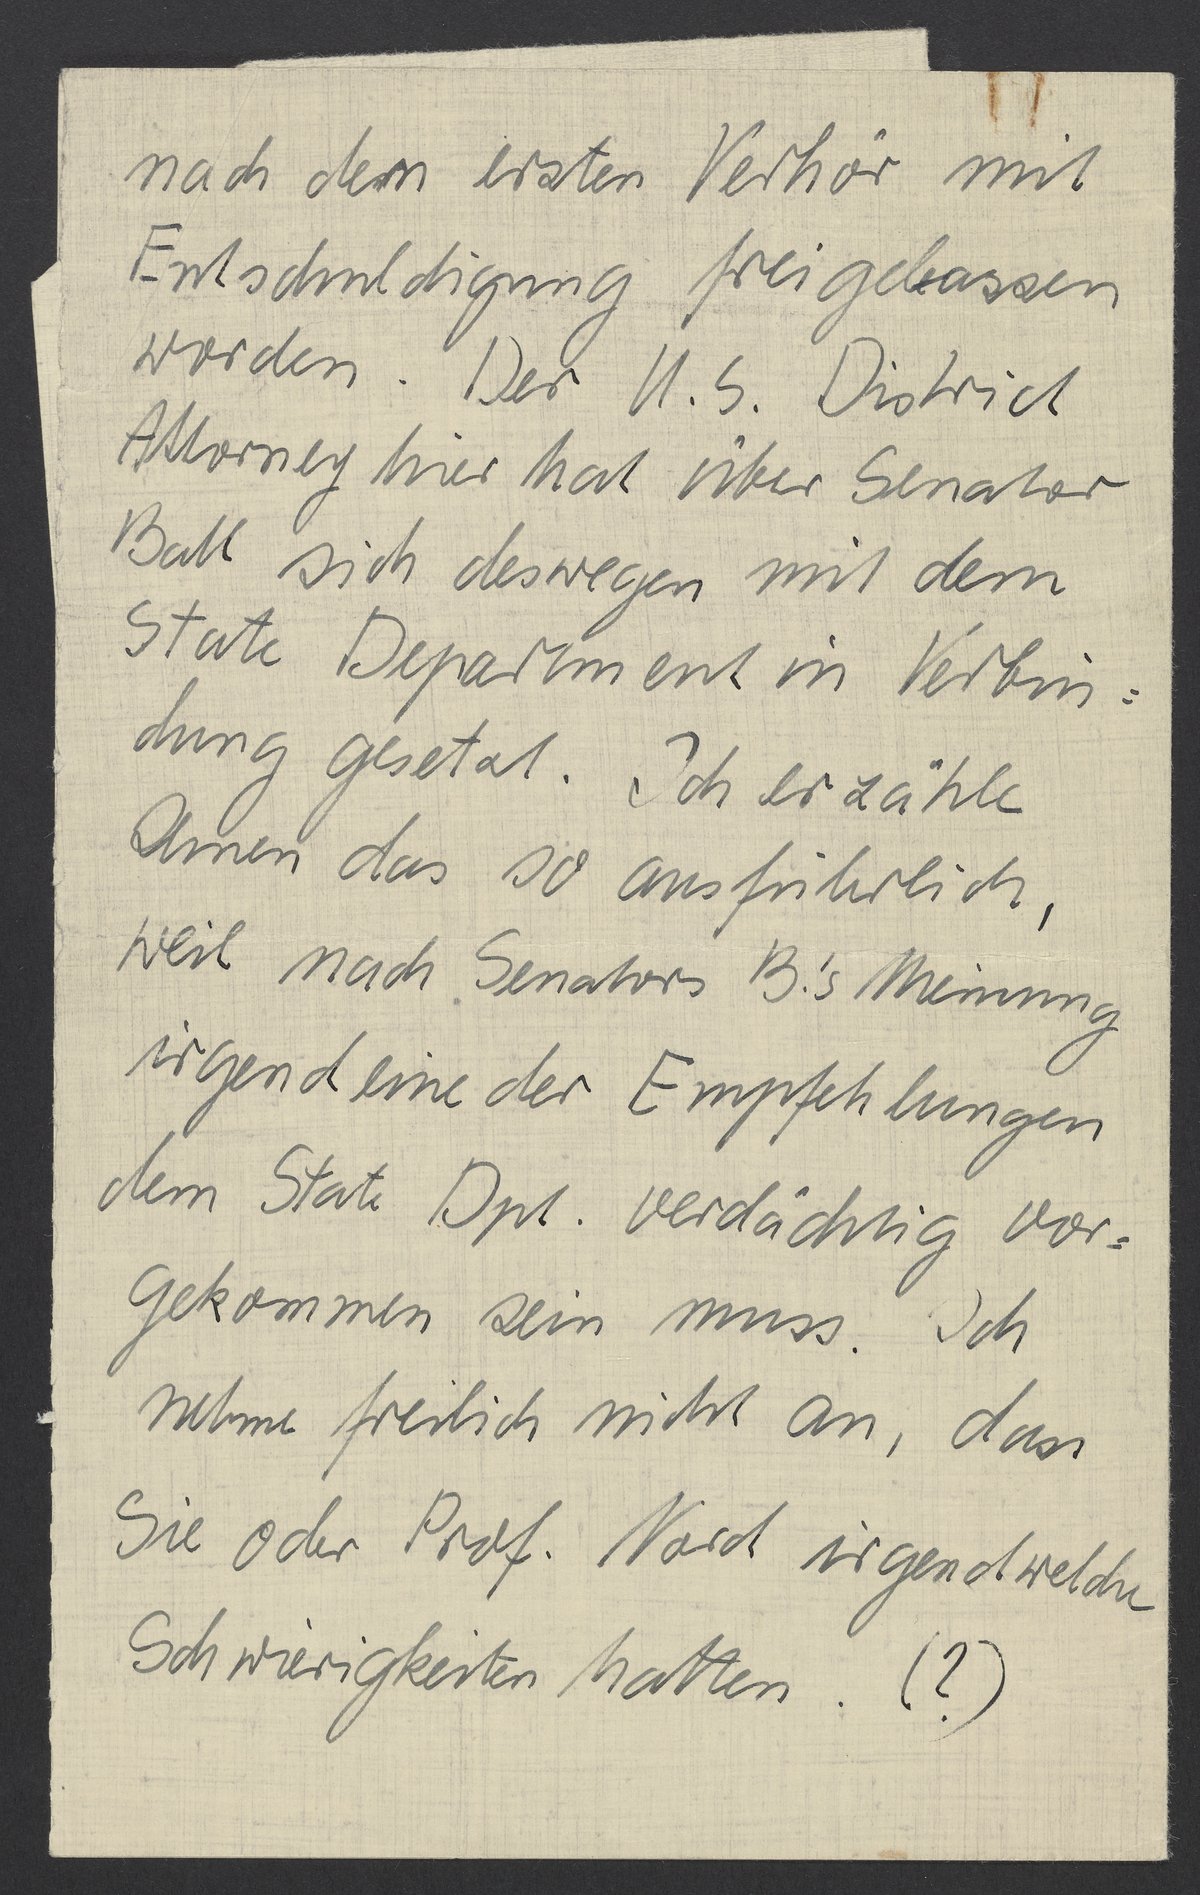 nach dem ersten Verhör mit
Entschuldigung freigelassen
worden. Der U.S. District
Attorney hier hat über Senator
Ball sich deswegen mit dem
State Department in Verbin=
dung gesetzt. Ich erzähle
Ihnen das so ausführlich,
weil nach Senators B.'s Meinung
irgendeine der Empfehlungen
dem State Dpt. verdächtig vor=
gekommen sein muss. Ich
nehme freilich nicht an, dass
Sie oder Prof. Nord irgendwelche
Schwierigkeiten hatten. (?)